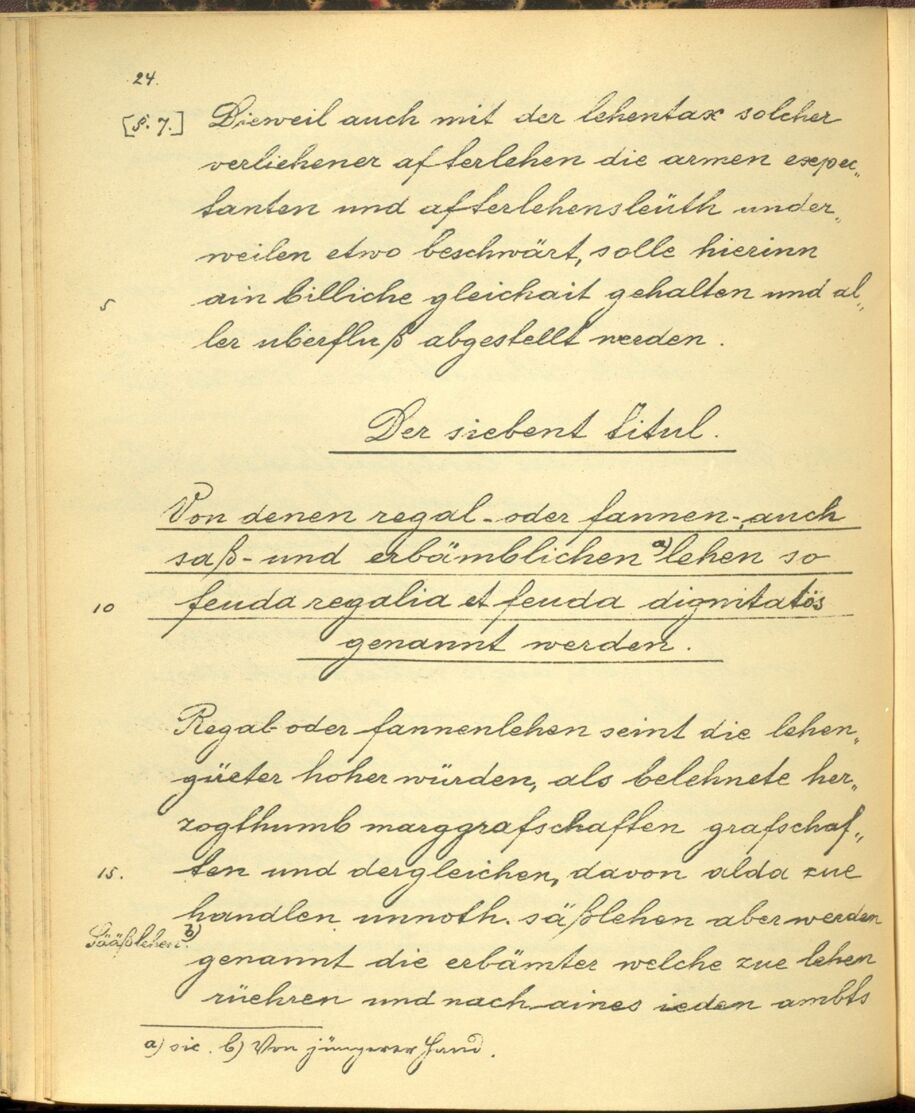 24.
[§. 7.] Dieweil auch mit der lehentax solcher
verliehener afterlehen die armen expec„
tanten und afterlehensleüth under„
weilen etwo beschwärt, solle hierinn
5 ain billiche gleichait gehalten und al„
ler uberfluß abgestellt werden.
Der siebent titul.
Von denen regal- oder fannen-, auch
saß- und erbämblichen a) lehen so
10 feuda regalia et feuda dignitatös
genannt werden.
Regal- oder fannenlehen seint die lehen„
güeter hoher würden, als belehnete her„
zogthumb marggrafschaften grafschaf„
15. ten und dergleichen, davon alda zue
handlen unnoth. säßlehen aber werden
Sääßlehen. b)
genannt die erbämter welche zue lehen
rüehren und nach aines ieden ambts
a) sic. b) Von jüngerer Hand.